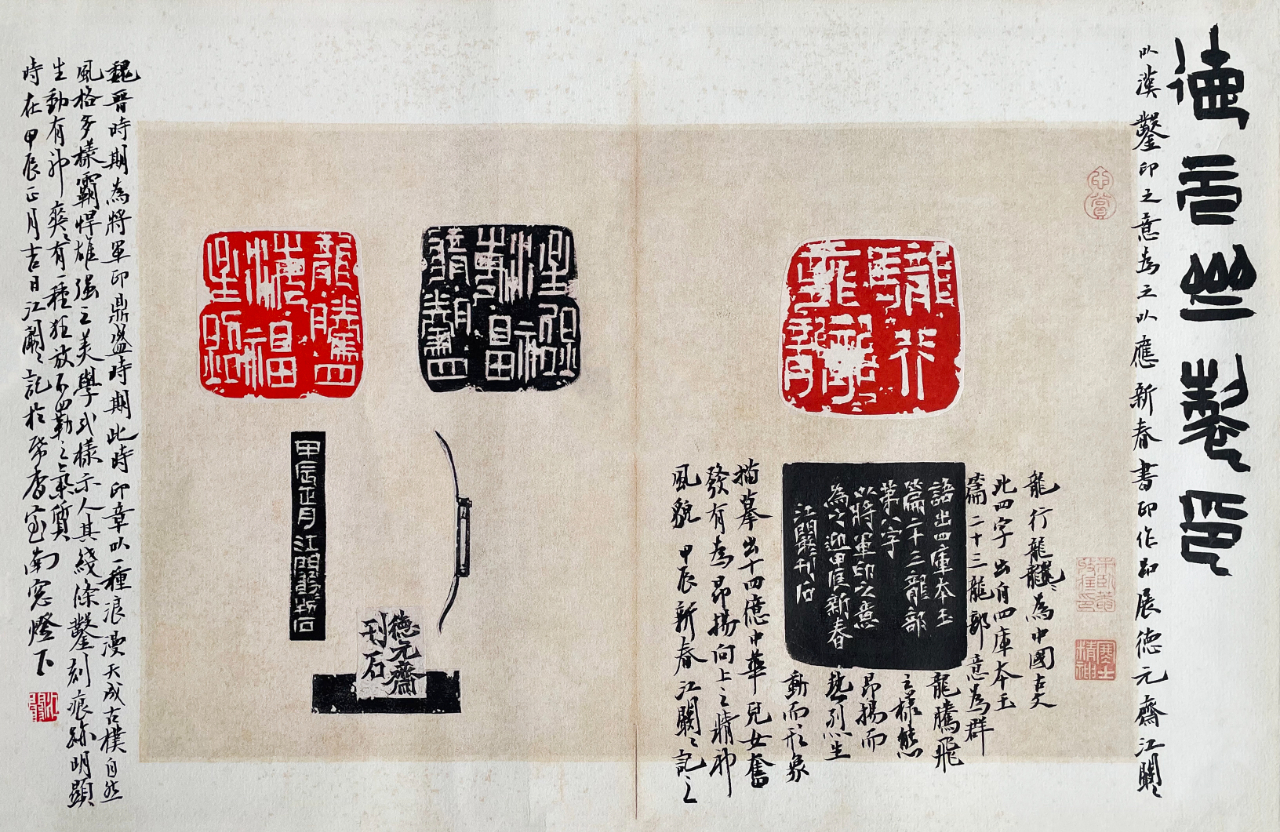 德元齋製印
以漢鑿印之意為之以應新春書印作品展德元齋江闢闢
龍行龘龘為中國古文
此四字出自四庫本玉
篇二十三龍部意為群
龍騰飛
之樣態
昂揚而
熱烈生
動而形象
描摹出十四億中華兒女奮
發有為昂揚向上之精神
風貌 甲辰新春江闢闢記之
龍行龘龘
語出四庫本玉
篇二十三龍部
第八字
以將軍印之意
為之迎甲辰新春
江闢刊石
龍騰四海福
甲辰正月江闢刻石
德元齋
刊石
魏晉時期為將軍印鼎盛時期此時印章以一種浪漫天成古樸自然
風格多樣霸悍雄強之美學式樣示人其綫條鑿刻痕跡明顯
生動有神爽有一種狂放不羈之氣質
時在甲辰正月吉日江闢闢記於 香室南窗燈下